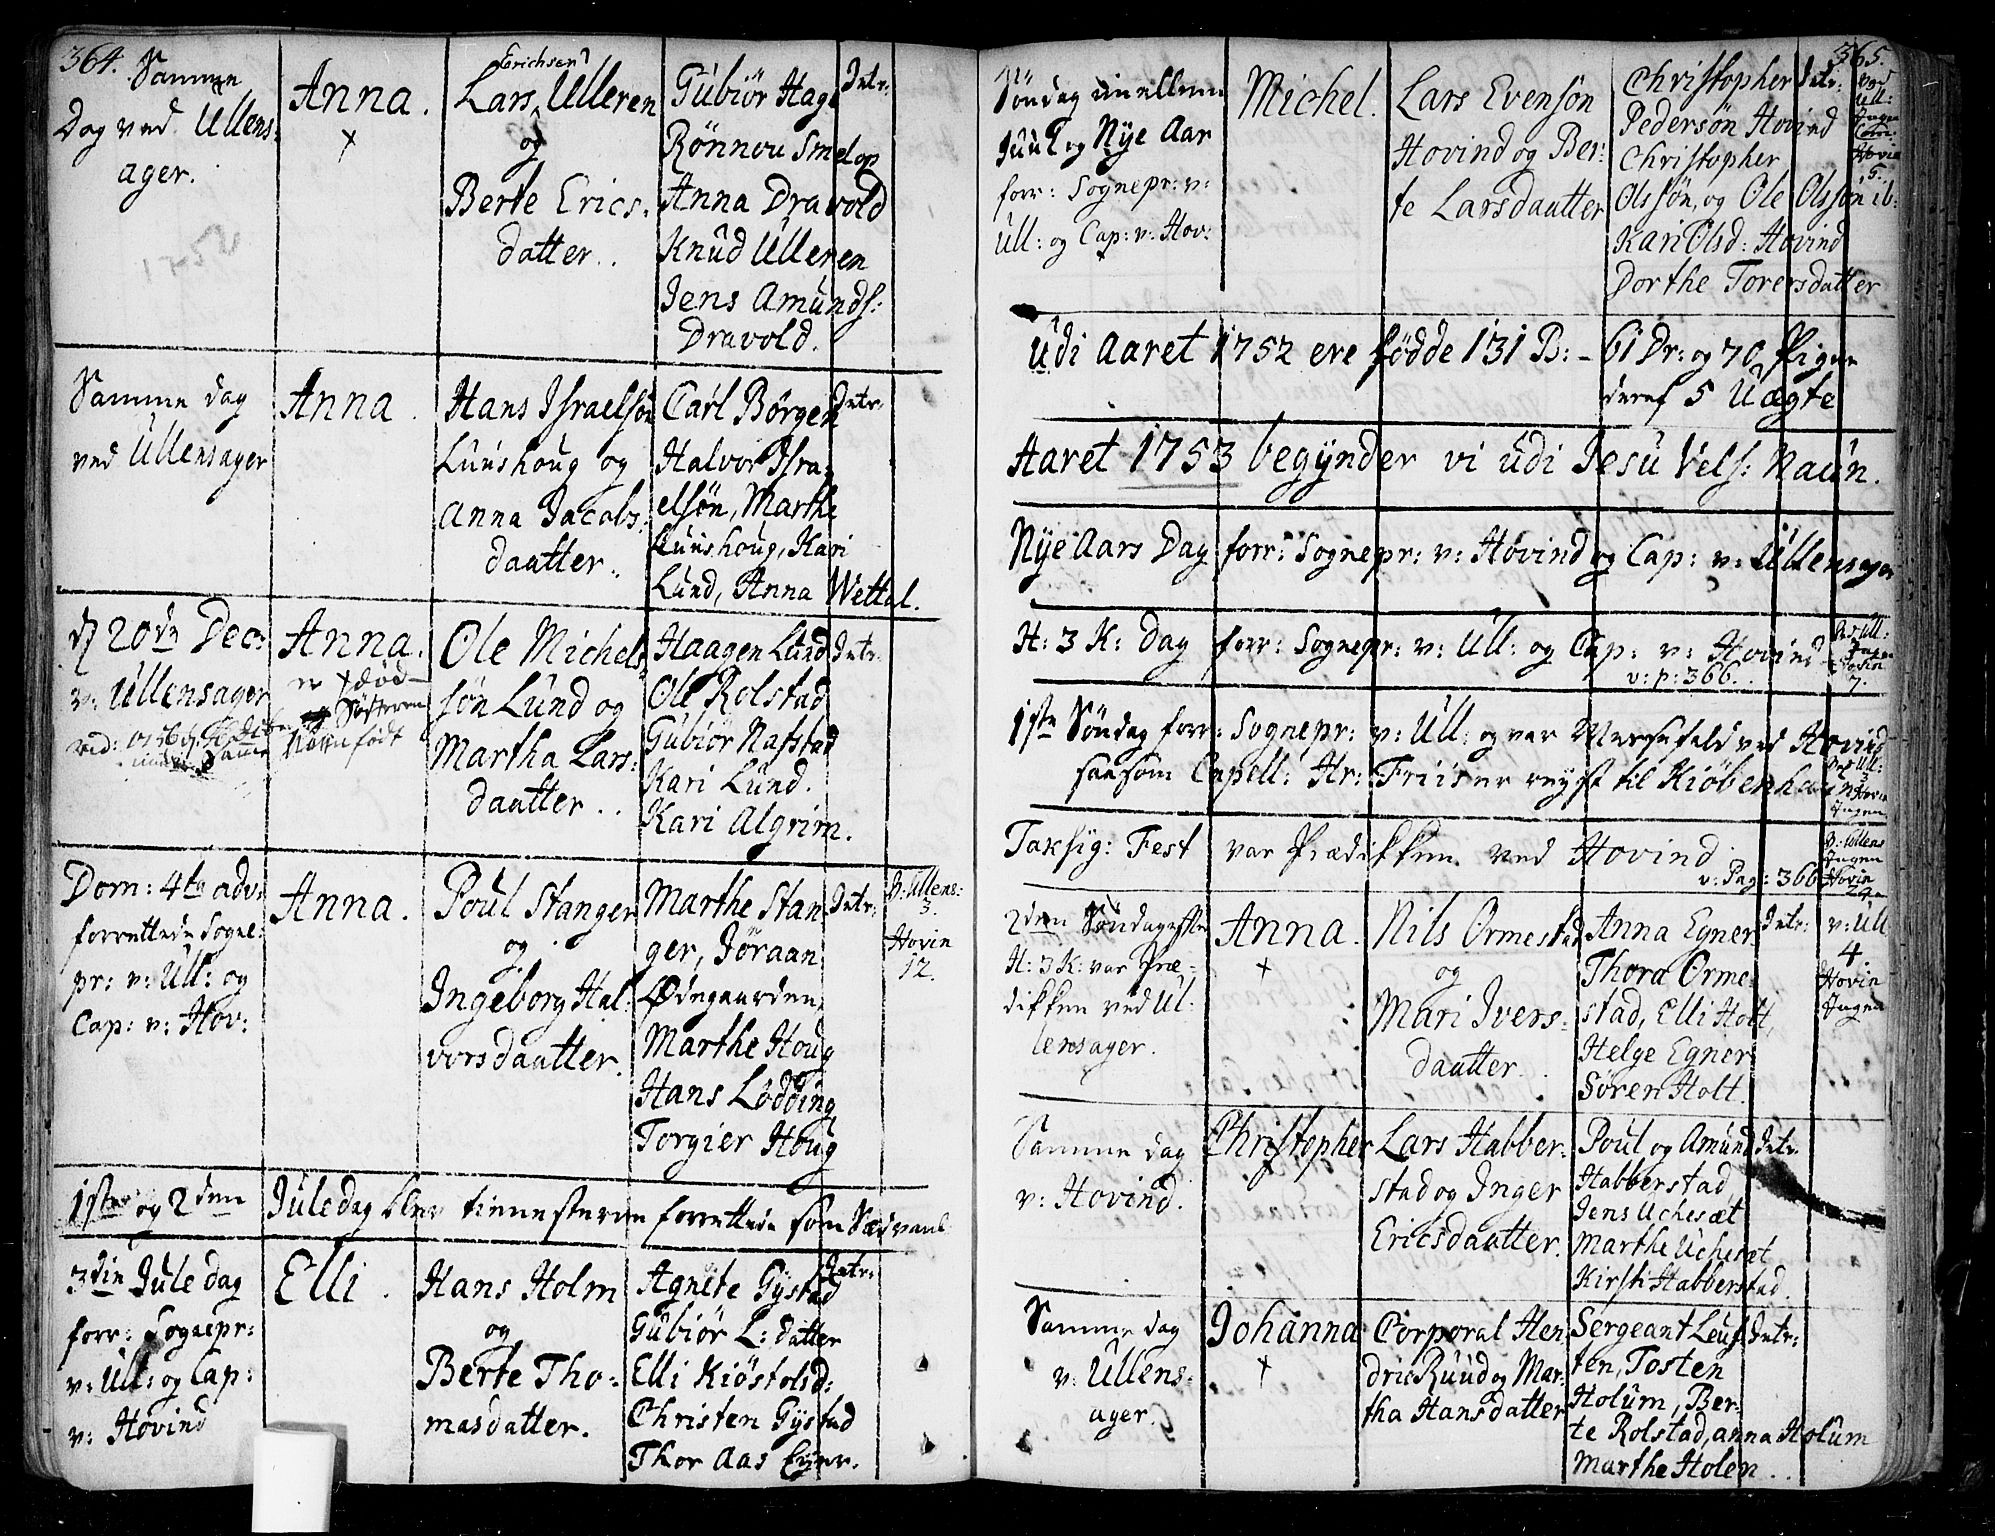 364.
Samme
Dag ved Ullens-
ager.
1752
Anna.
+
Erichsen
Lars Ulleren
og
Berte Erics-
datter.
Gubiör Hage
Rönnou Smelop
Anna Dravold
Knud Ulleren
Jens Amunds:
Dravold.
Intr:
Samme dag
ved Ullensager
Anna.
Hans Israelsön
Luushoug og
Anna Jacobs-
daatter.
Carl Börgen
Halvor Isra-
elsön, Marthe
Luushoug, Kari
Lund, Anna Wettal.
Intr:
20de Dec:
v: Ullensager
Anna.
er död
Ole Michel-
sön Lund og
Martha Lars-
daatter.
Haagen Lund
Ole Rolstad
Gubiör Nafstad
Kari Lund.
Kari Algrim.
Intr:
Dom: 4ta adv:
forrettede Sogne-
pr: v: Ull: og
Cap: v: Hov:
Anna.
Poul Stanger
og
Ingeborg Hal-
vorsdaatter.
Marthe Stan-
ger, Jöraan
Ödegaarden,
Marthe Houg
Hans Lödding
Torgier Houg
Intr:
v: Ullens:
3.
Hovin
12.
1ste og 2den Juledag blev tienesterne forrettede som Sædvanl
3die Jule dag
forr: Sognepr:
v: Ull: og Cap:
v: Hovind
Elli.
Hans Holm
og
Berte Tho-
masdatter.
Agnete Gystad
Gubiör L: datter
Elli Kiöstolsd:
Christen Gystad
Thor Aas Eyer.
Intr:
365.
Söndag imellem
Juul og Nye Aar
forr: Sognepr: v:
Ull: og Cap: v: Hov:
Michel.
Lars Evensön
Hovind og Ber-
te Larsdaatter
Christopher
Pedersön Hovind
Christopher
Olssön, og Ole Olssön ib:
Kari Olsd: Hovind
Dorthe Toresdatter
Intr:
ved
Ull:
Ingen
Hovin
5.
Udi Aaret 1752 ere födde 131 B: - 61 Dr: og 70 Piger
deraf 5 Uægte
Aaret 1753 begynder vi udi Jesu Vels: Naun.
Nye Aars Dag forr: Sognepr: v: Hovind og Cap: v: Ullensager
H: 3 K: Dag forr: Sognepr: v: Ull: og Cap: v: Hovind
v: p: 366.
ved Ull:
Ingen
Hovin
7.
1ste Söndag forr: Sognepr: v: Ull: og var Messefald ved Hovind
saasom Capell: Hr: Friis er reyst til Kiöbenhavn
ved Ull:
3
Hovin
Ingen
Taksig: Fest var Prædikken ved Hovind
v: Pag: 366
v: Ullens
Ingen
Hovin
2den Söndag efter
H: 3 K: var Præ-
dikken ved Ul-
lensager.
Anna.
+
Nils Ormestad
og
Mari Ivers-
daatter.
Anna Egner
Thora Orme-
stad, Elli Holt,
Helge Egner
Sören Holt.
Intr:
v: Ull
4.
Hovin
Ingen
Samme dag
v: Hovind.
Christopher
Lars Habber-
stad og Inger
Ericsdaatter.
Poul og Amund
Habberstad,
Jens Uchesæt
Marthe Uchesæt
Kirsti Habberstad.
Intr:
Samme dag
v: Ullens-
ager.
Johanna
+
Corporal Hen-
dric Ruud og Mar-
tha Hansdatter
Sergeant Leuf-
ten, Tosten
Holum, Ber-
te Rolstad, anna Holum
Marthe Holen.
Intr: